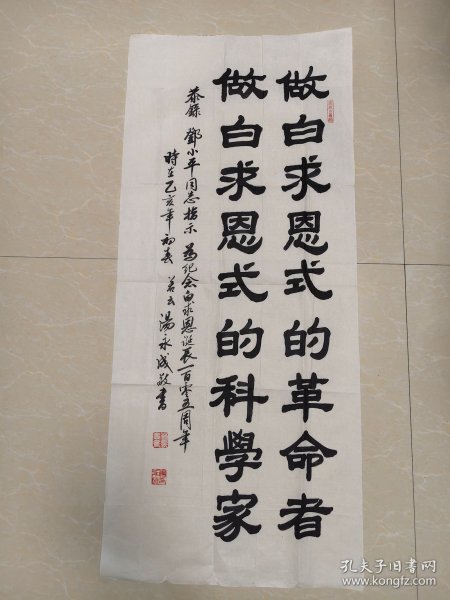 做白求恩式的革命者
做白求恩式的科學家
恭錄 鄧小平同志指示 為纪念白求恩诞辰一百零五周年
時在乙亥年初春 若云 湯永成敬書
孔夫子旧书网
www.kongfz.com